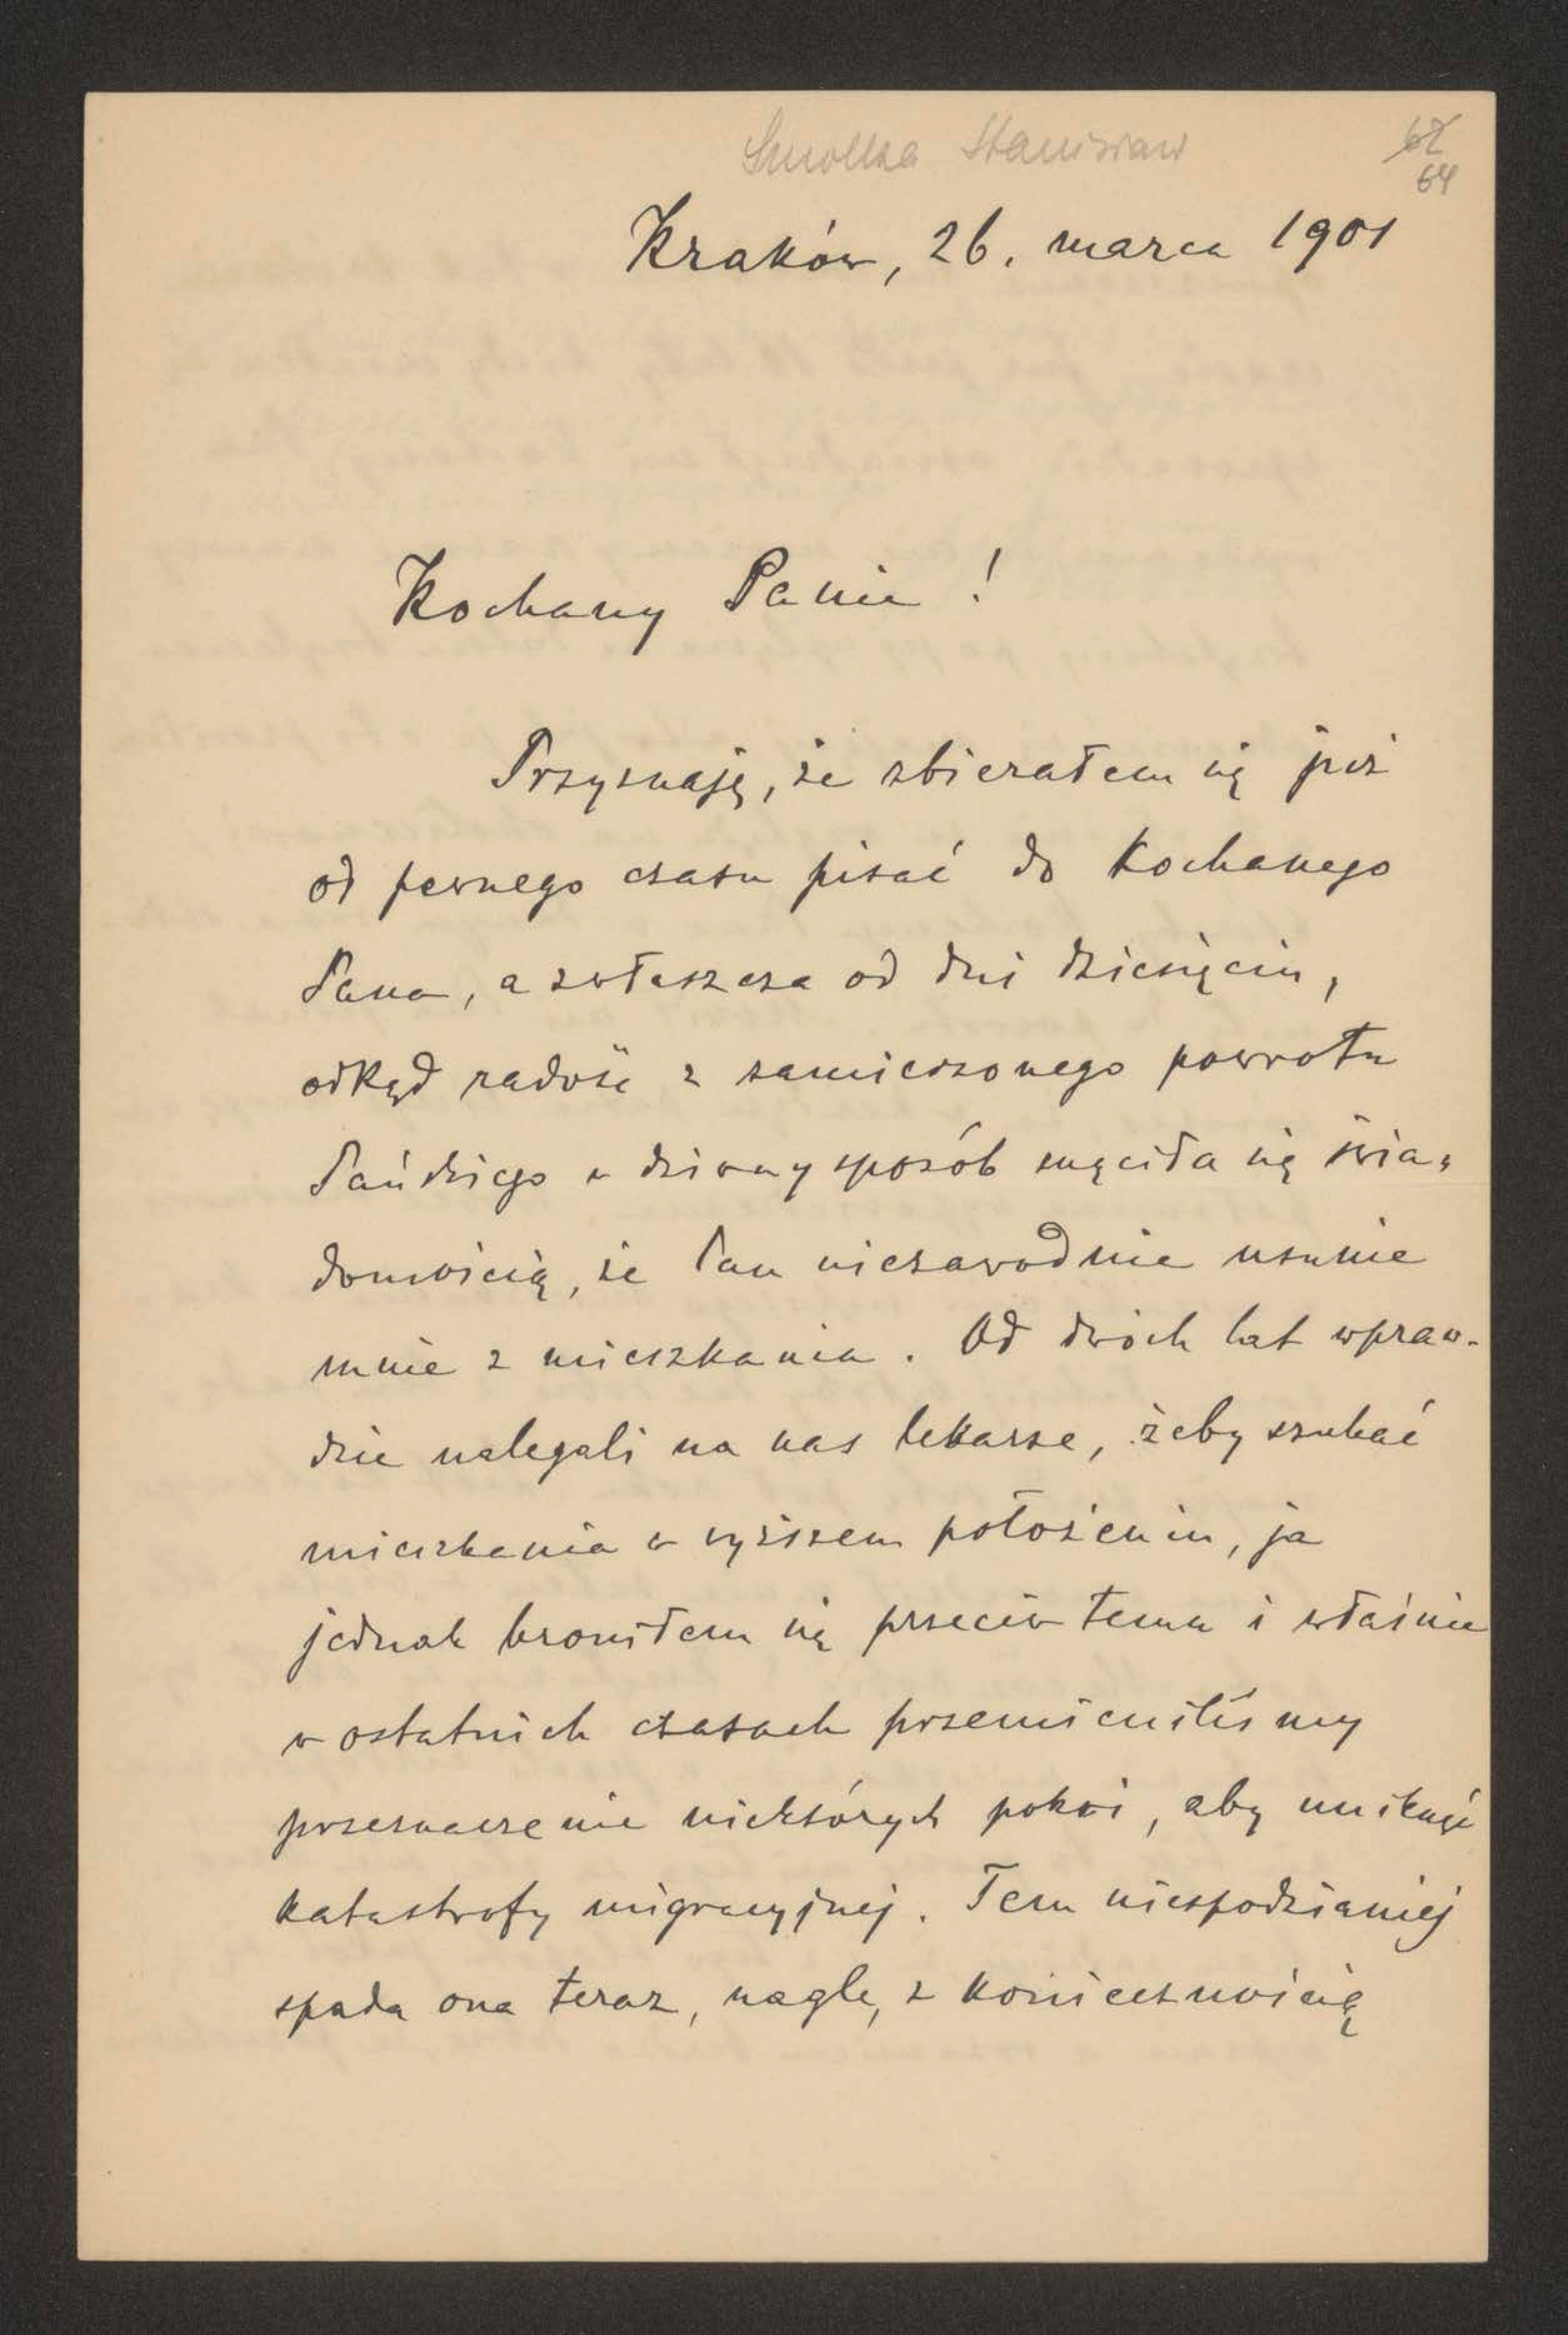 Smolka Stanisław
62
64
Kraków, 26. marca 1901
Kochany Panie!
Przyznaję, że zbierałem się już
od pewnego czasu pisać do Kochanego
Pana, a zwłaszcza od dni dziesięciu,
odkąd radość z zamierzonego powrotu
Pańskiego w dziwny sposób mąciła się świa-
domością, że Pan niezawodnie usunie
mnie z mieszkania. Od dwóch lat wpraw-
dzie nalegali na nas lekarze, żeby szukać
mieszkania w wyższem położeniu, ja
jednak broniłem się przeciw temu i właśnie
w ostatnich czasach przemieniliśmy
przeznaczenie niektórych pokoi, aby uniknąć
katastrofy migracyjnej. Tem niespodzianiej
spada ona teraz, nagle, z koniecznością